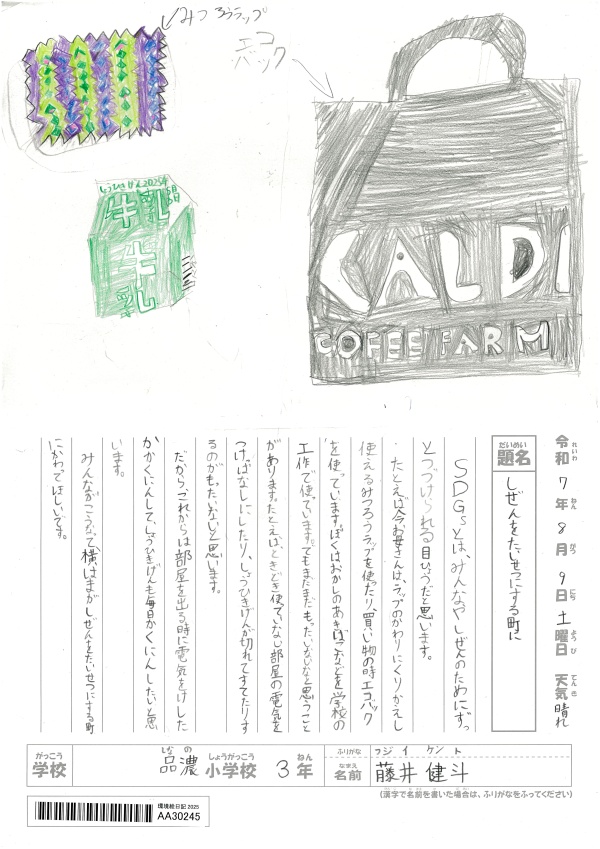 みつろうラップ
エコ
バック
しょうひきげん2025年
牛乳
牛乳
CALDI
COFEE FARM
令和7年8月9日土曜日 天気晴れ
れいわ ねん がつ にち ようび てんき
だいめい
題名
しぜんをたいせつにする町に
SDGsとは、みんなやしぜんのためにずっ
とつづけられる目ひょうだと思います。
たとえば今お母さんは、ラップのかわりにくりかえし
使えるみつろうラップを使ったり、買い物の時エコバック
を使っています。ぼくはおかしのあきばこなどを学校の
工作で使っています。でもまだまだもったいないなと思うこと
があります。たとえば、ときどき使っていない部屋の電気を
つけっぱなしにしたり、しょうひきげんが切れてすてたりす
るのがもったいないと思います。
だから、これからは部屋を出る時に電気をけした
かかくにんして、しょうひきげんも毎日かくにんしたいと思
います。
みんながこうなって、横はまがしぜんをたいせつにする町
にかわてほしいです。
がっこう
学校
しな の
品濃
しょうがっこう
小学校
ねん
3年
ふりがな
フジイ ケント
なまえ
名前
藤井健斗
(漢字で名前を書いた場合は、ふりがなをふってください)
環境絵日記2025
AA30245